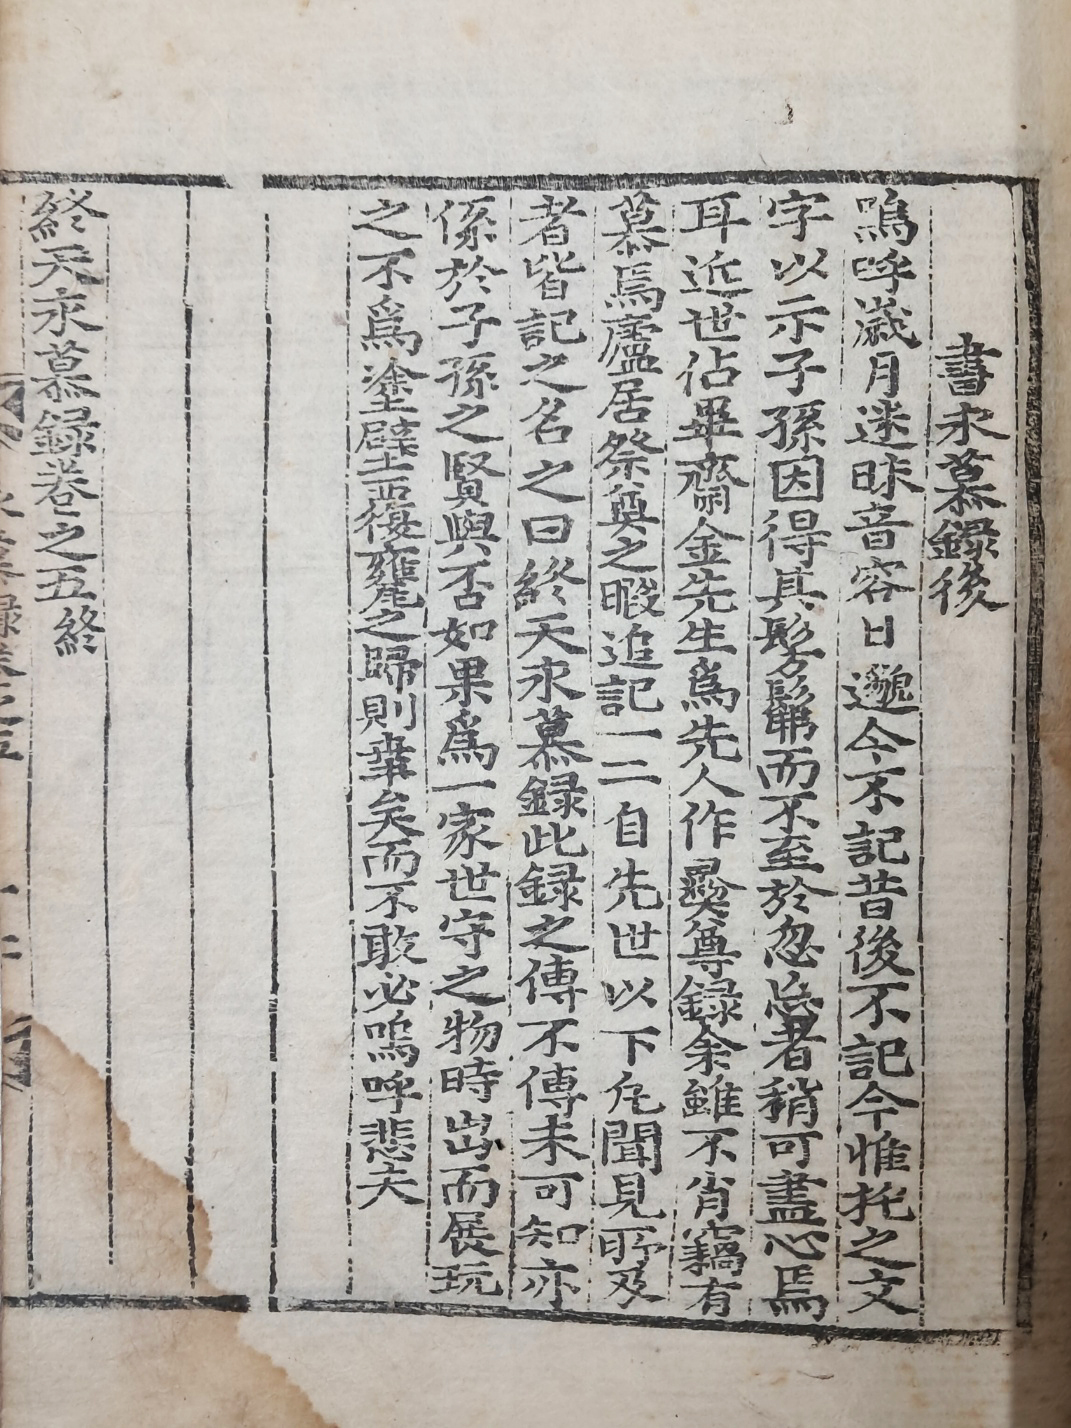 書永慕錄後
嗚呼歲月迷昧音容日邈今不記昔後不記今惟托之文
字以示子孫因得其髣髴而不至於忽忘者稍可盡心焉
耳近世佔畢齋金先生爲先人作彛尊録余雖不肖竊有
慕焉廬居祭奠之暇追記一二自先世以下凡聞見所及
者皆記之名之曰終天永慕錄此録之傳不傳未可知亦
係於子孫之賢與否如果爲一家世守之物時出而展玩
之不爲塗壁覆甕之歸則幸矣而不敢必嗚呼悲夫
終天永慕録卷之五終